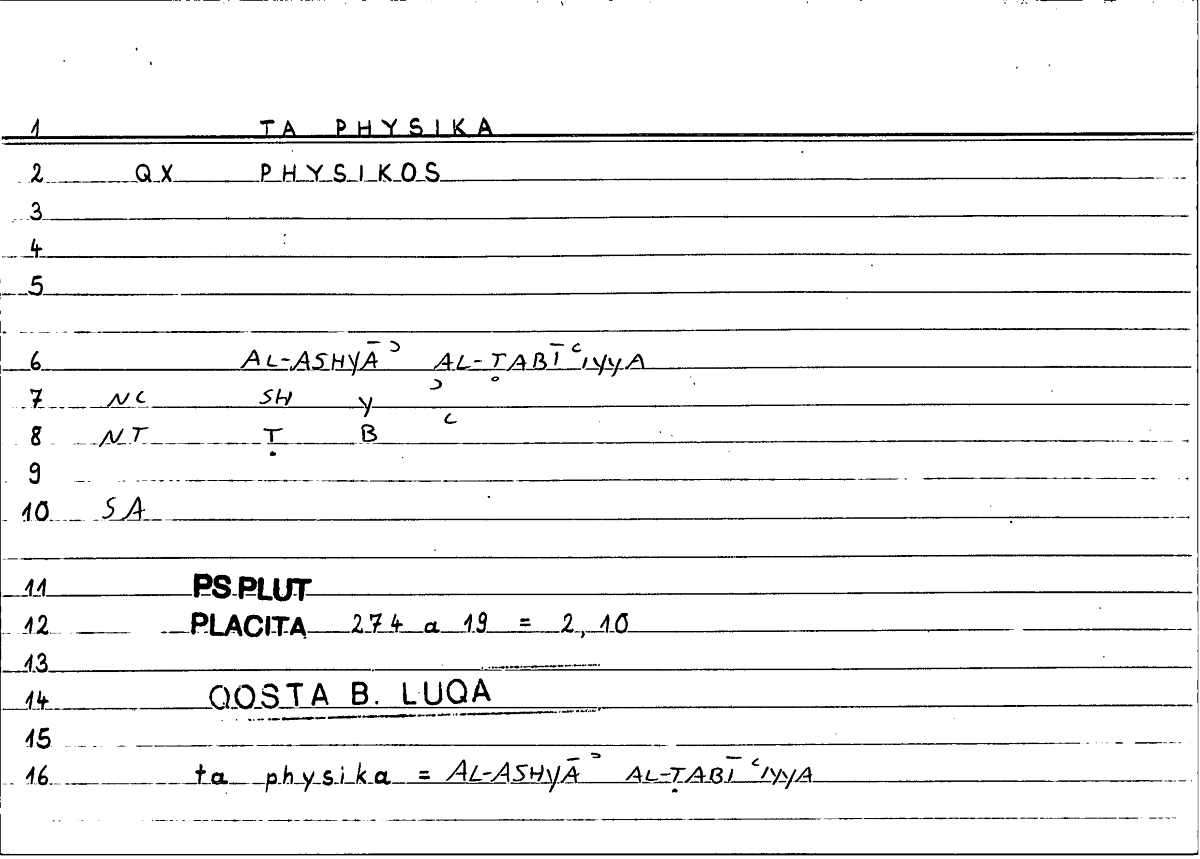 1 TA PHYSIKA
2 QX PHYSIKOS
3
4
5
6 AL-ASHYĀʾ AL-ṬABĪʿIYYA
7 NC SH Y ʾ
8 NT Ṭ B ʿ
9
10 SA
11 PS.PLUT
12 PLACITA 274 a 19 = 2, 10
13
14 QOSTA B. LUQA
15
16 ta physika = AL-ASHYĀʾ AL-ṬABĪʿIYYA